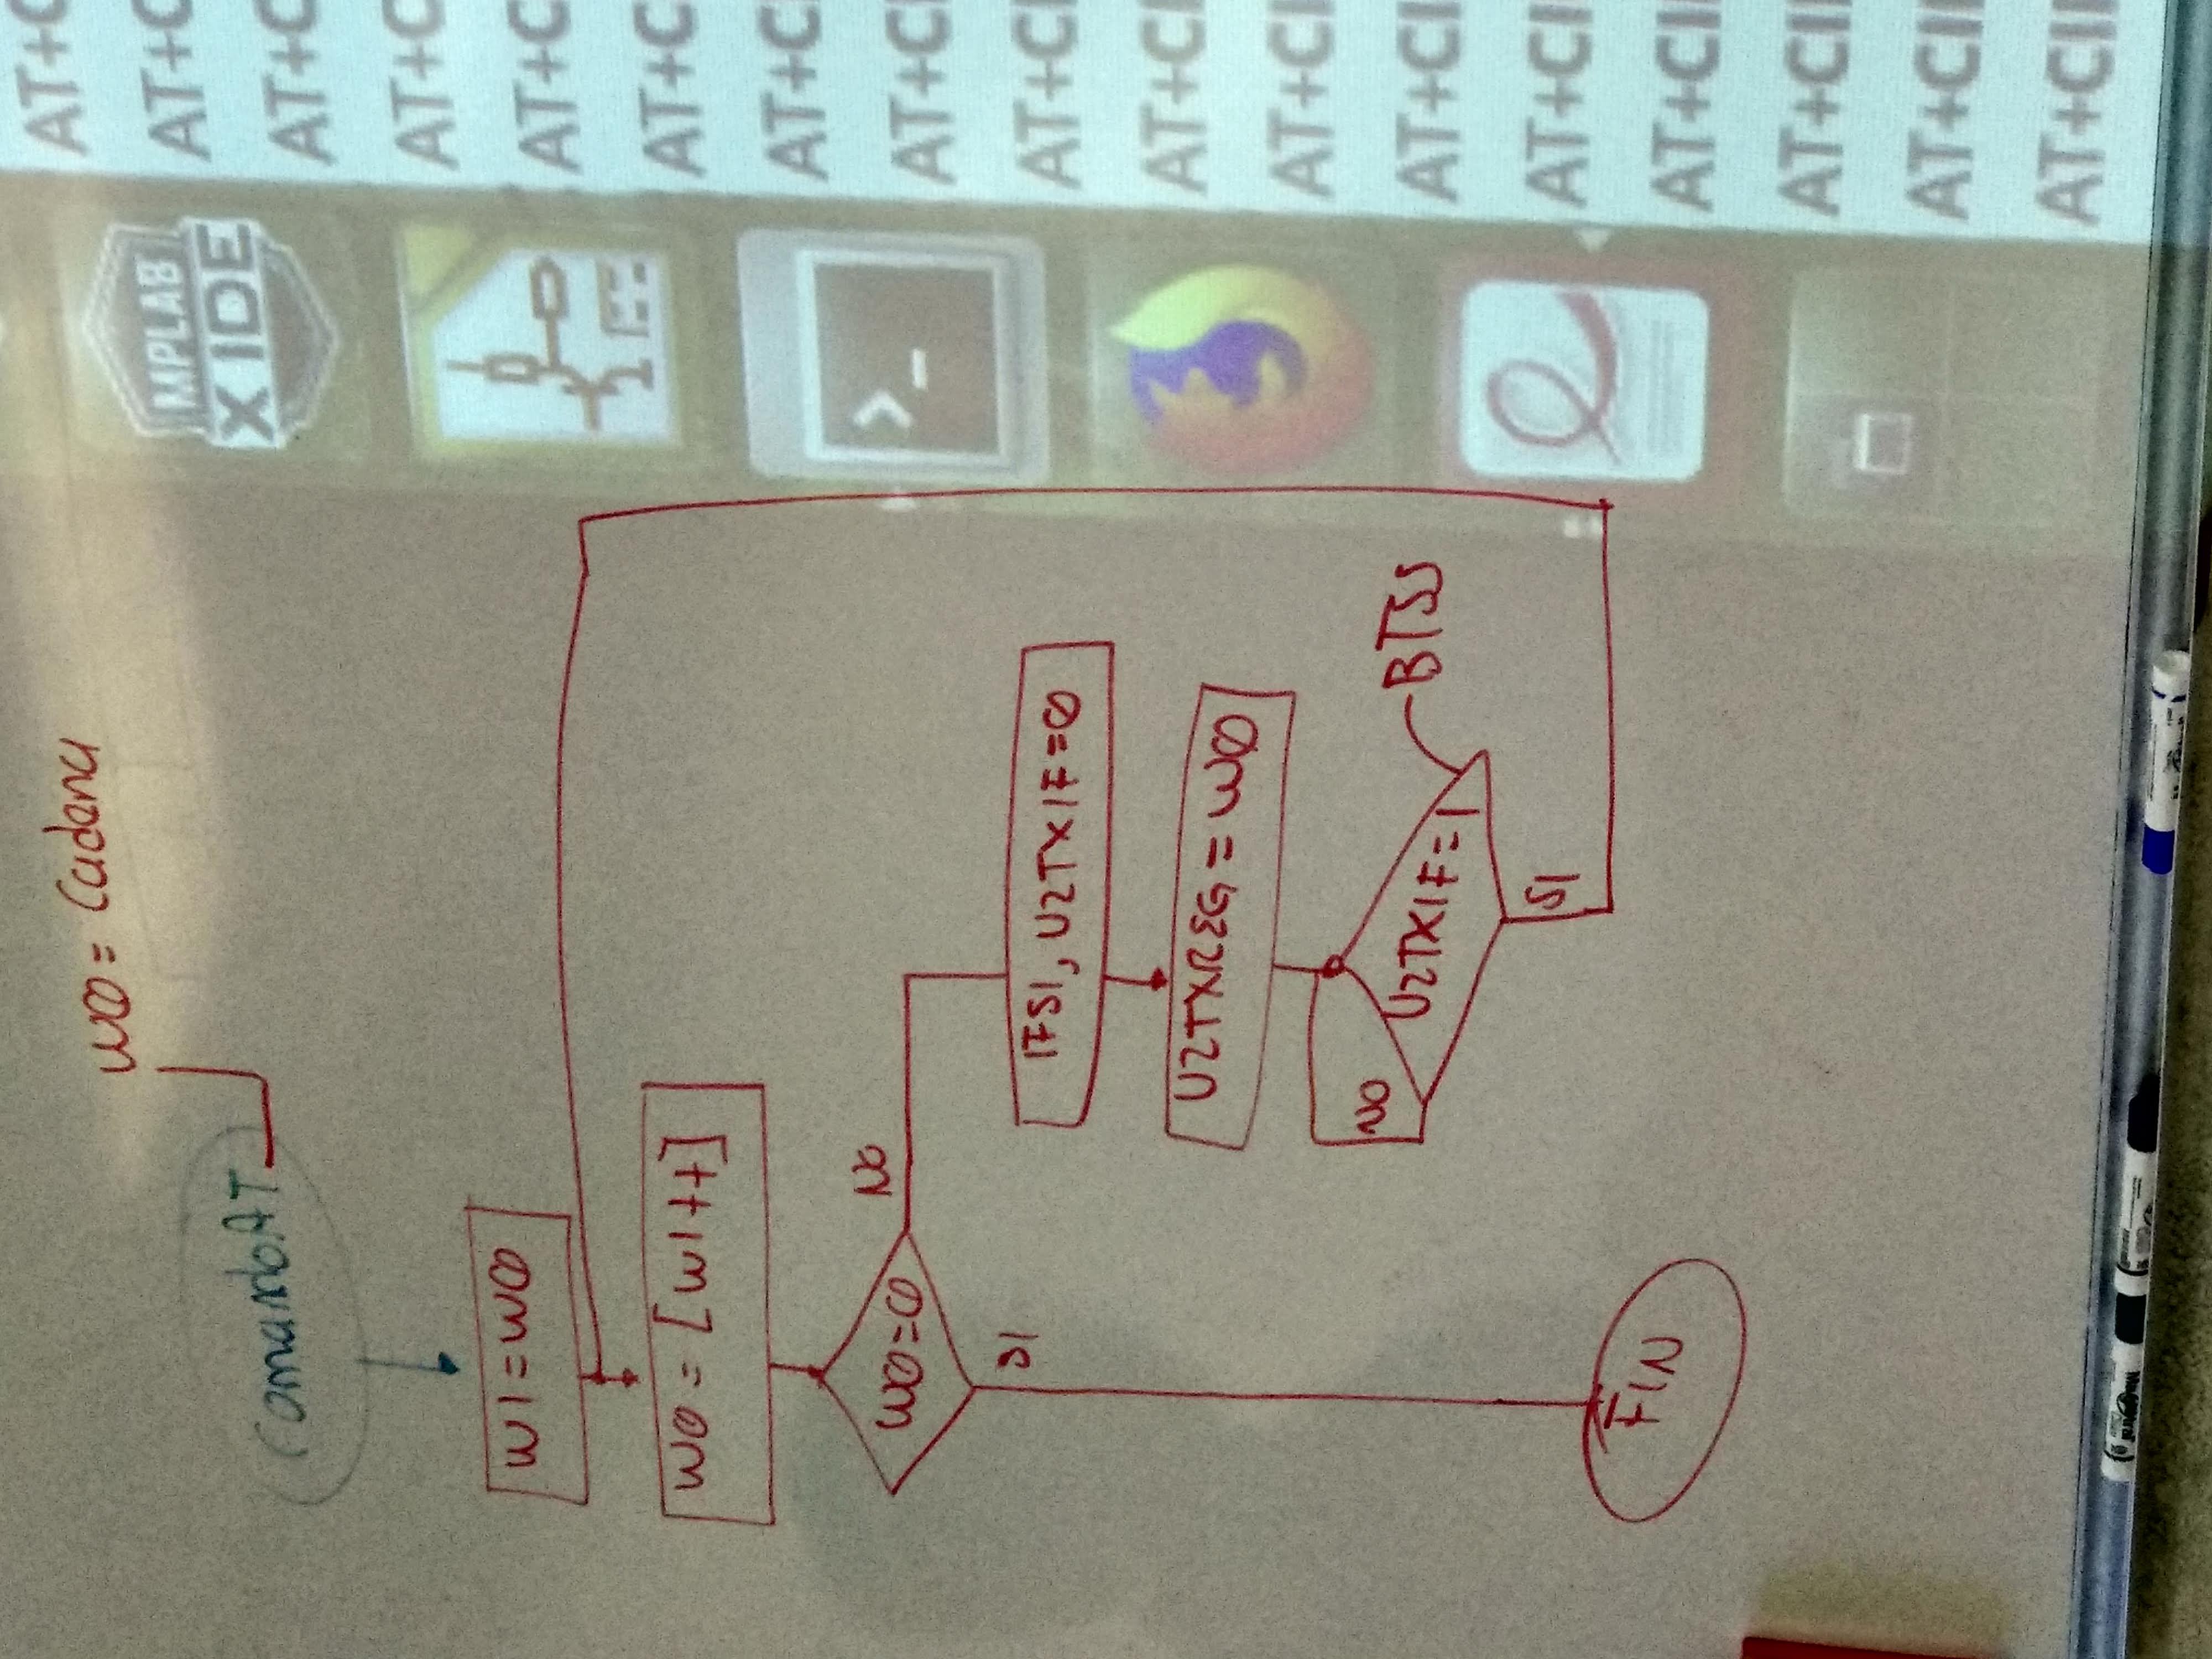 WØ = Cadena
ComandoAT
W1=WØ
WØ = [W1++]
WØ=Ø
NO
SI
IFS1, U2TXIF=Ø
U2TXREG = WØ
NO
U2TXIF=1
BTSS
SI
FIN
MPLAB
X IDE
>_
AT+C
AT+C
AT+C
AT+C
AT+C
AT+C
AT+C
AT+CI
AT+CI
AT+CI
AT+CI
AT+CI
AT+CI
AT+CI
AT+CII
AT+CII
AT+CII